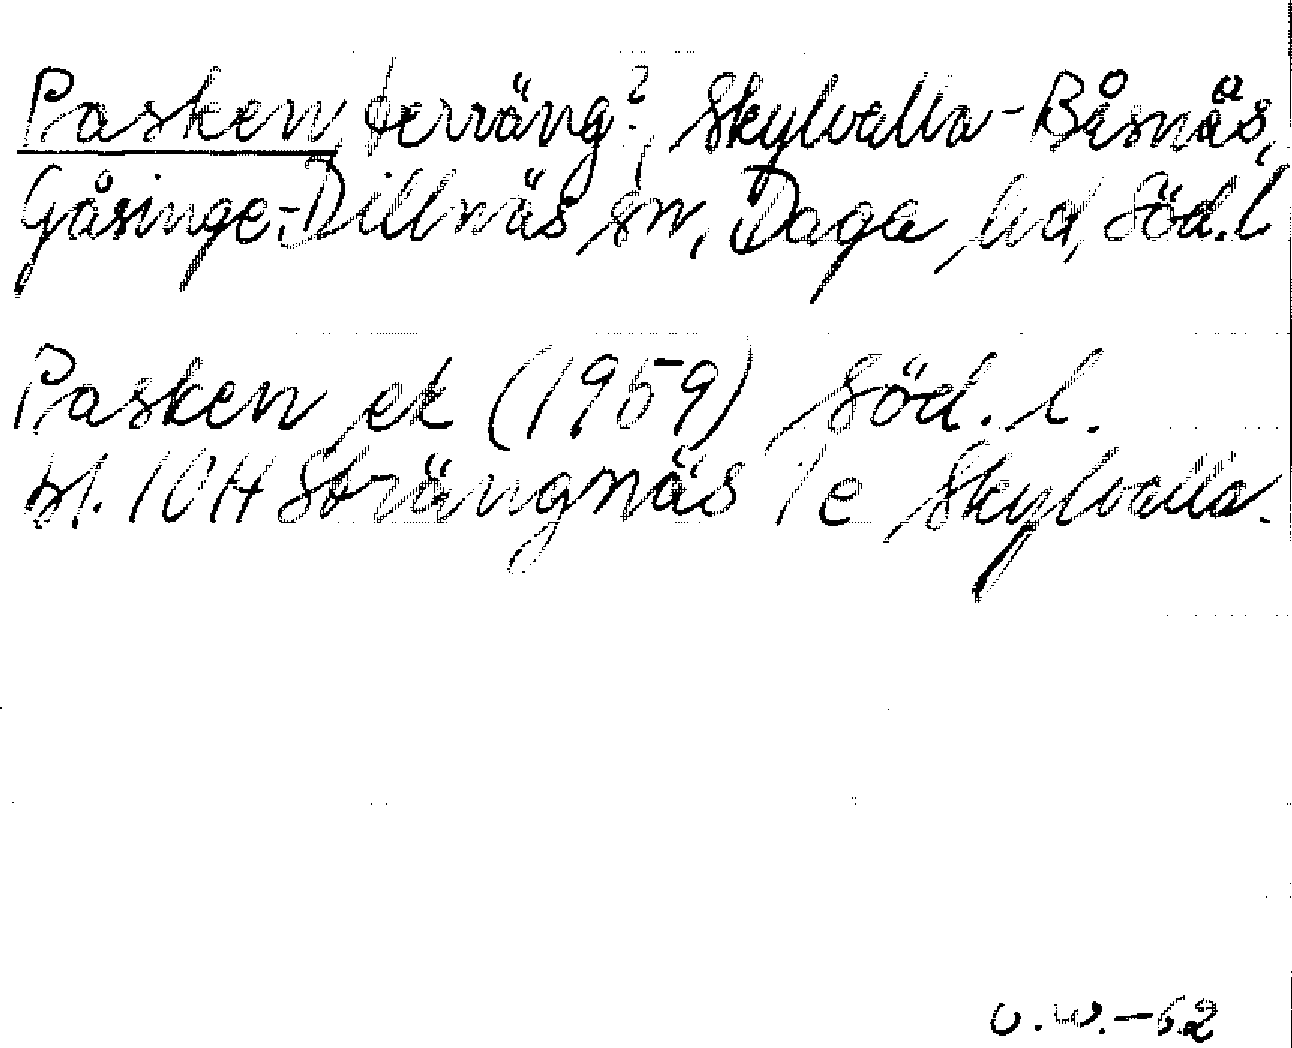 Pasken, terräng?, Skylvalla-Båsnäs,
Gåsinge-Dillnäs sn, Daga hd, Söd.l
Pasken ek (1959) Söd. l.
bl. 10H Strängnäs 1e Skylvalla.
O.W.-62